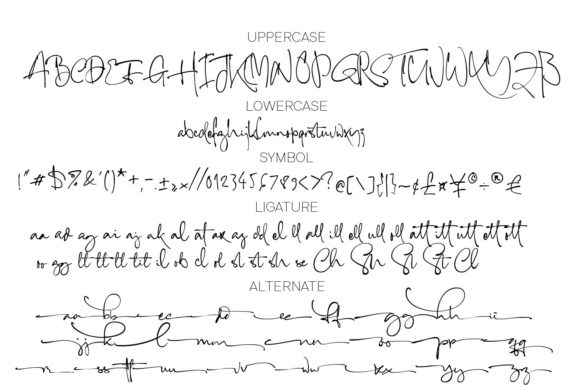 UPPERCASE
ABCDEFGHIJKLMNOPQRSTUVWXYZB
LOWERCASE
abcdefghijklmnopqrstuvwxyz
SYMBOL
!"#$%&'()*+,-.±≥×//0123456789<>?@[\]{|}~¢£¤¥©÷®€
LIGATURE
aa ad ag ai aj ak al at ax ay dd el ll all ill ell ull oll att itt utt ett ott
oo gg tt tt ll tit il ob cl rl sl st sh se Ch Sh Sl St Cl
ALTERNATE
aa bb cc dd ee ff gg hh ii
jj k l mm nn oo pp qq
r ss tt uu vv w xx yy zz